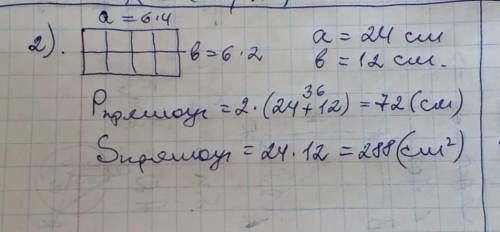 a = 6·4
2).
в = 6·2
a = 24 см
в = 12 см.
36
Pпрямоуг = 2·(24+12) = 72 (см)
Sпрямоуг = 24·12 = 288 (см²)